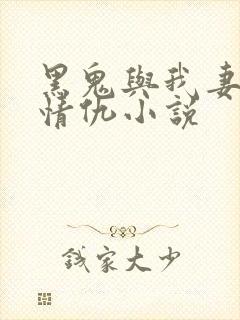 黑鬼與我妻
情仇小說
錢家大少